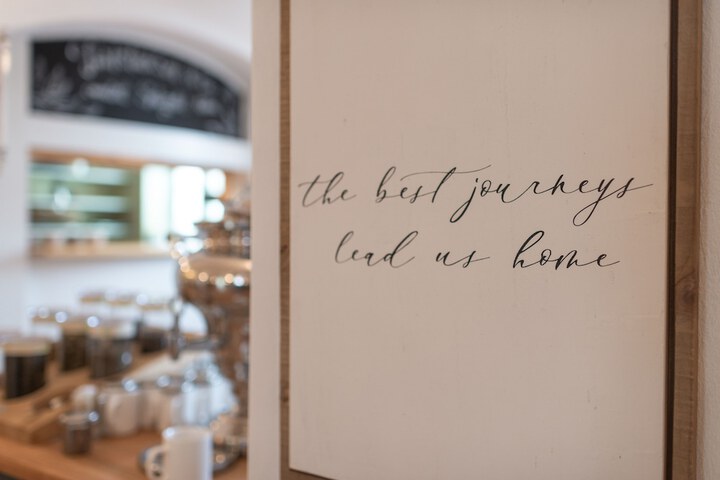 the best journeys
lead us home